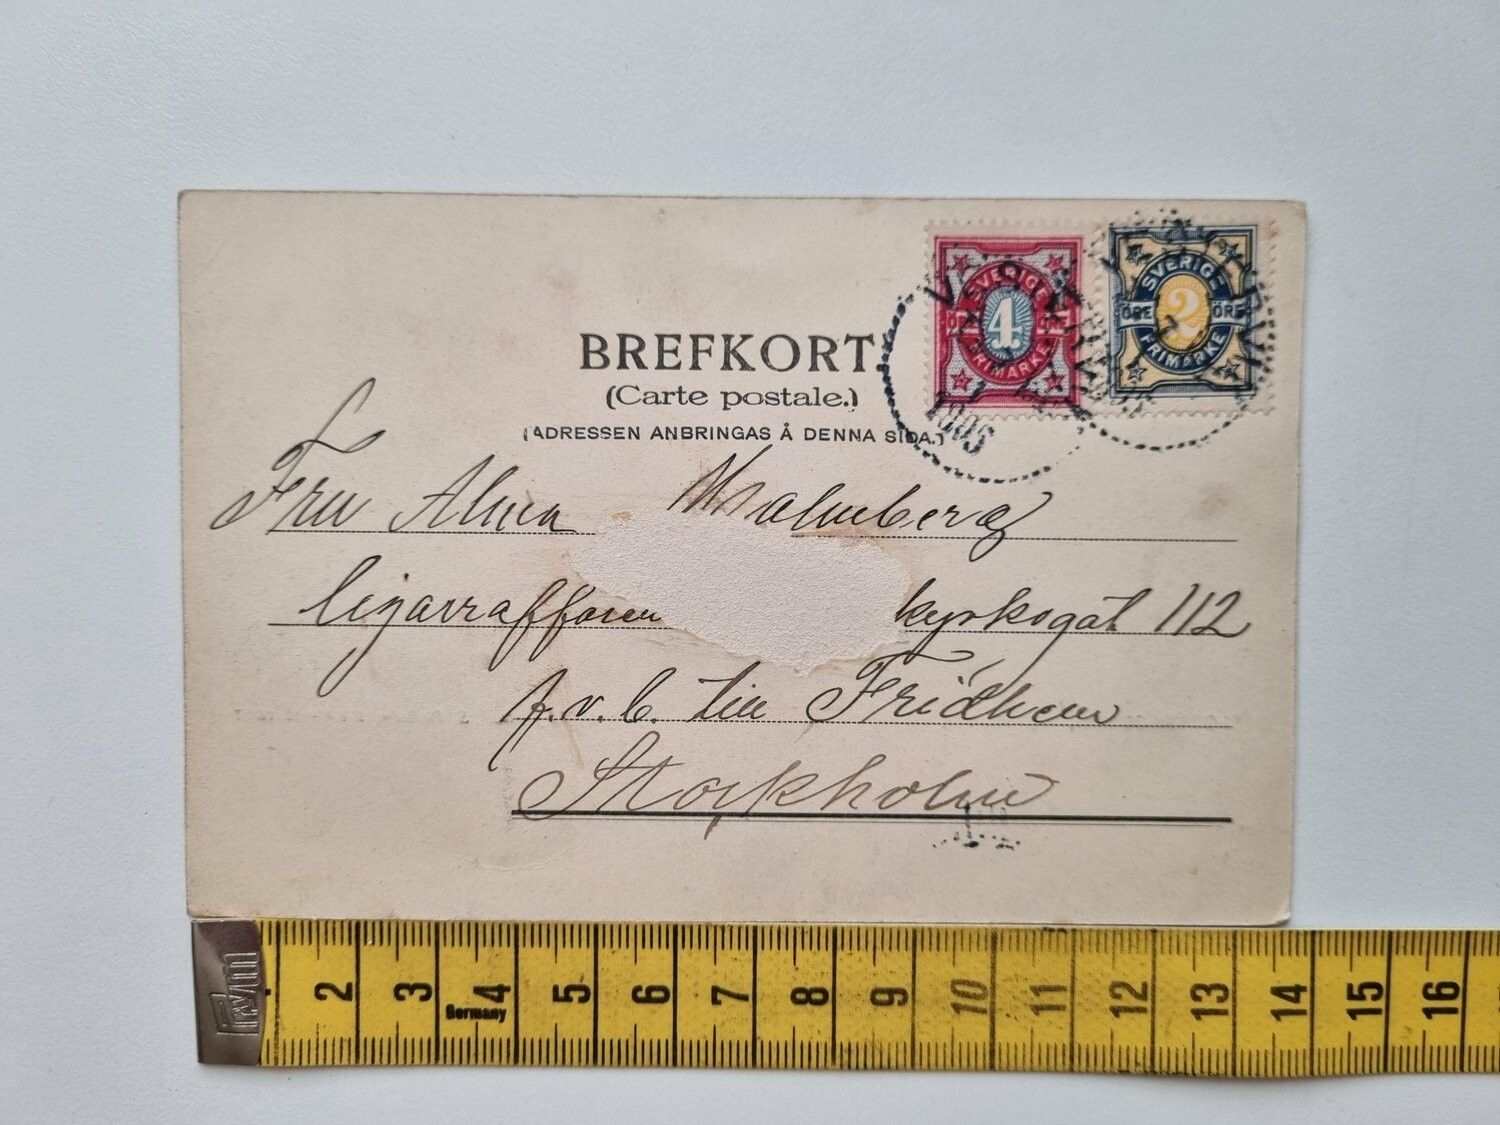 BREFKORT
(Carte postale.)
(ADRESSEN ANBRINGAS Å DENNA SIDA.)
SVERIGE
ÖRE 4 ÖRE
FRIMÄRKE
SVERIGE
ÖRE 2 ÖRE
FRIMÄRKE
Fru Alma Malmberg
Cigarraffären kyrkogat 112
f.v.b. till Fridhem
Stockholm
2 3 4 5 6 7 8 9 10 11 12 13 14 15 16
Germany